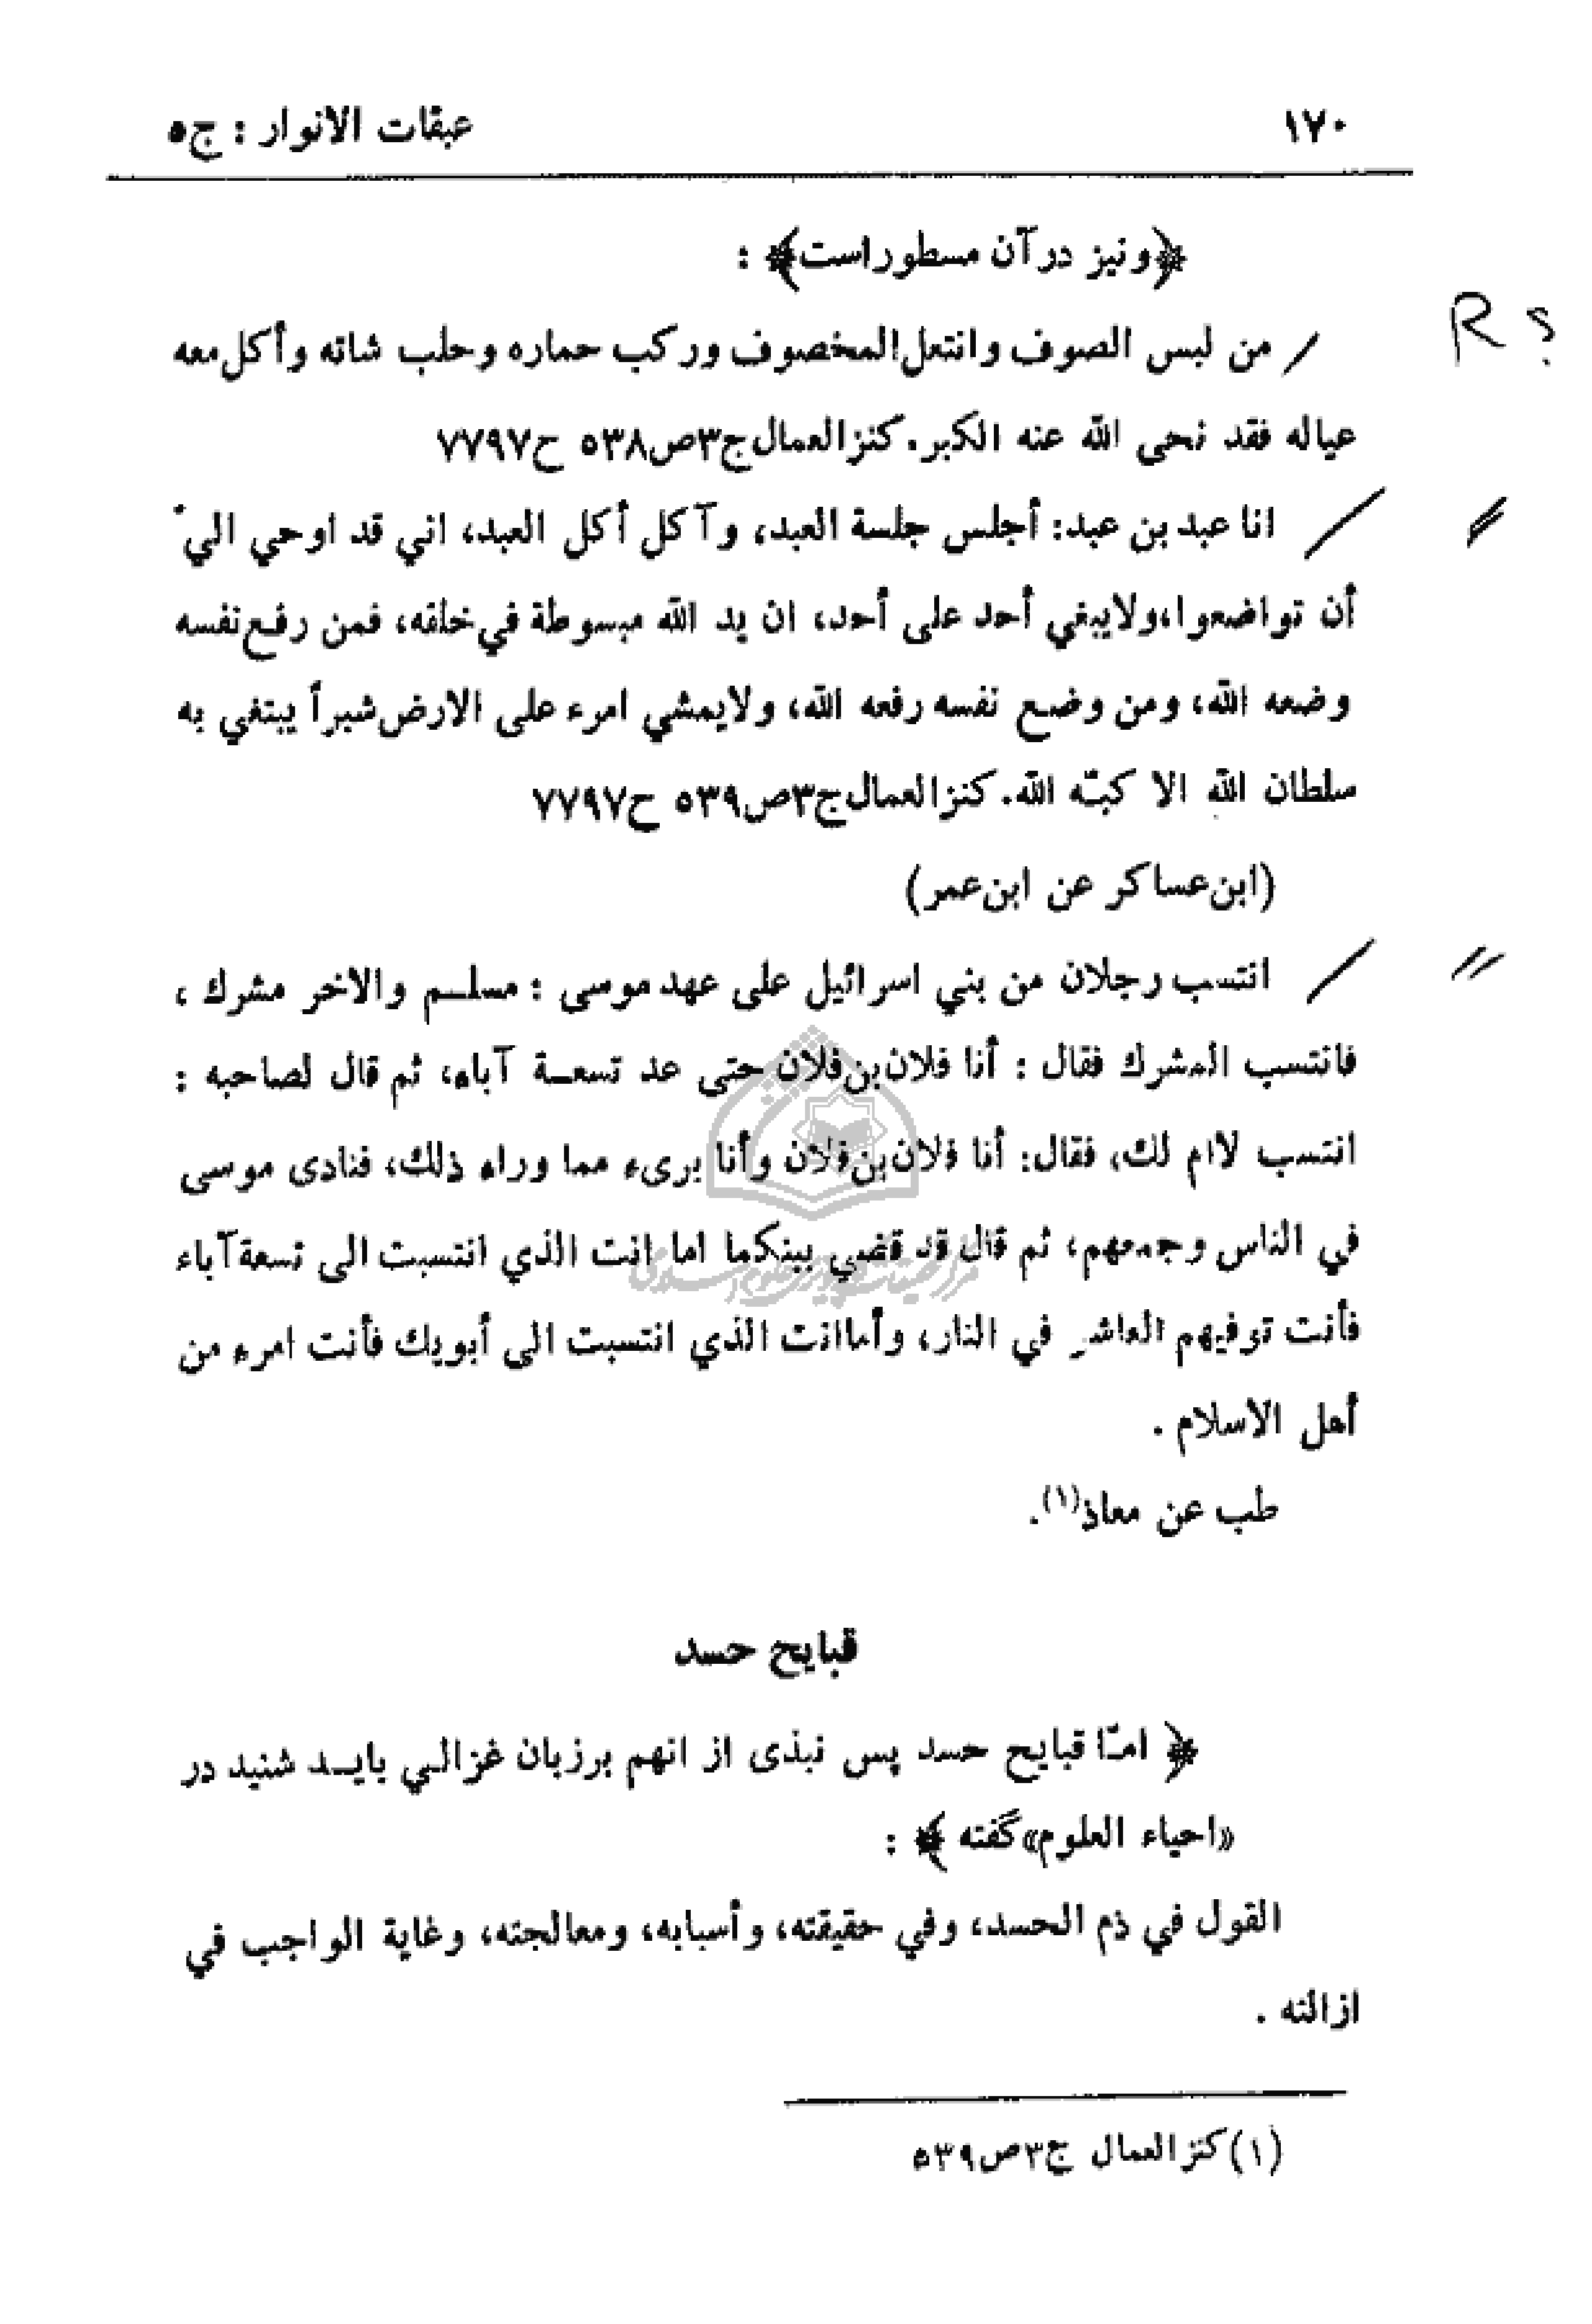 ١٧٠ عبقات الانوار : ج٥
﴿ونيز درآن مسطوراست﴾ :
R ؟
/ من لبس الصوف وانتعل المخصوف وركب حماره وحلب شاته وأكل معه
عياله فقد نحى الله عنه الكبر. كنزالعمال ج٣ص٥٣٨ ح٧٧٩٧
/ انا عبد بن عبد: أجلس جلسة العبد، وآكل أكل العبد، اني قد اوحي اليّ
أن تواضعوا، ولايبغي أحد على أحد، ان يد الله مبسوطة في خلقه، فمن رفع نفسه
وضعه الله، ومن وضع نفسه رفعه الله، ولايمشي امرء على الارض شبراً يبتغي به
سلطان الله الا كبّه الله. كنزالعمال ج٣ص٥٣٩ ح٧٧٩٧
(ابن عساكر عن ابن عمر)
/ انتسب رجلان من بني اسرائيل على عهد موسى : مسلم والاخر مشرك ،
فانتسب المشرك فقال : أنا فلان بن فلان حتى عد تسعة آباء، ثم قال لصاحبه :
انتسب لاام لك، فقال: أنا فلان بن فلان وأنا برىء مما وراء ذلك، فنادى موسى
في الناس وجمعهم، ثم قال قد قضي بينكما اما انت الذي انتسبت الى تسعة آباء
فأنت توفيهم العاشر في النار، وأماانت الذي انتسبت الى أبويك فأنت امرء من
أهل الاسلام .
طب عن معاذ(١).
قبايح حسد
﴿ امّا قبايح حسد پس نبذى از انهم برزبان غزالي بايد شنيد در
«احياء العلوم» گفته ﴾ :
القول في ذم الحسد، وفي حقيقته، وأسبابه، ومعالجته، وغاية الواجب في
ازالته .
(١) كنزالعمال ج٣ص٥٣٩